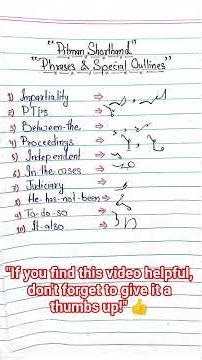 "Pitman Shorthand"
"Phrases & Special Outlines"
1) Impartiality ⇒
2) PTIs ⇒
3) Between-the ⇒
4) Proceedings ⇒
5) Independent ⇒
6) In-the cases ⇒
7) Judiciary ⇒
8) He-has-not-been ⇒
9) To-do-so ⇒
10) It-also ⇒
"If you find this video helpful,
don't forget to give it a
thumbs up!" 👍